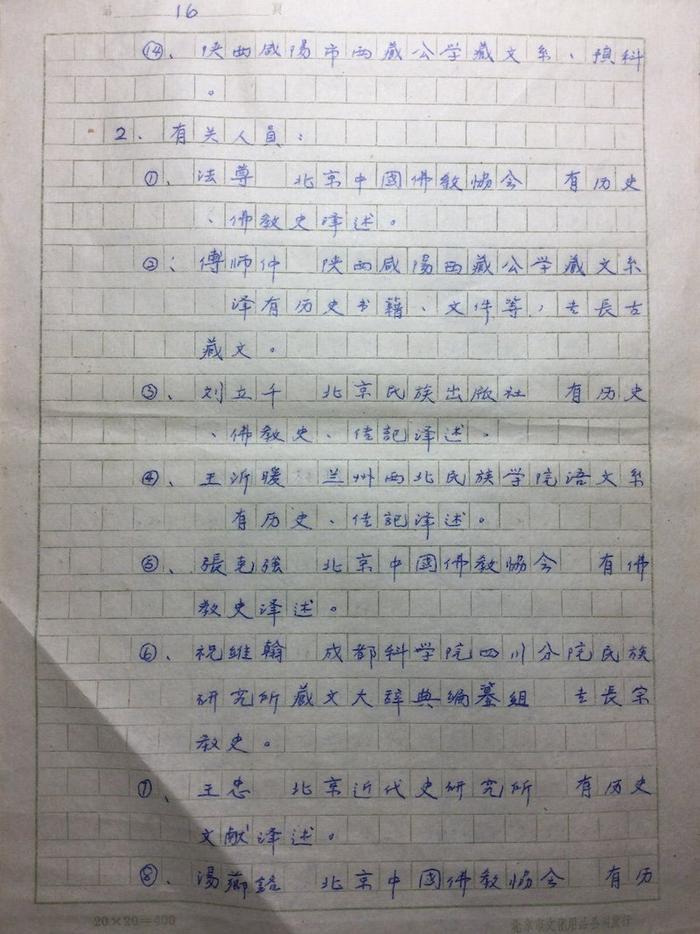 第 16 頁
⑭、陕西咸陽市西藏公学藏文系、預科
。
2、有关人員：
①、法尊 北京中國佛教协会 有历史
、佛教史译述。
②、傅师仲 陕西咸陽西藏公学藏文系
译有历史书籍、文件等，专長古
藏文。
③、刘立千 北京民族出版社 有历史
、佛教史、传記译述。
④、王沂暖 兰州西北民族学院语文系
有历史、传記译述。
⑤、張克強 北京中國佛教协会 有佛
教史译述。
⑥、祝维翰 成都科学院四川分院民族
研究所藏文大辞典编纂组 专長宗
教史。
⑦、王忠 北京近代史研究所 有历史
文献译述。
⑧、湯薌銘 北京中國佛教协会 有历
20×20=400